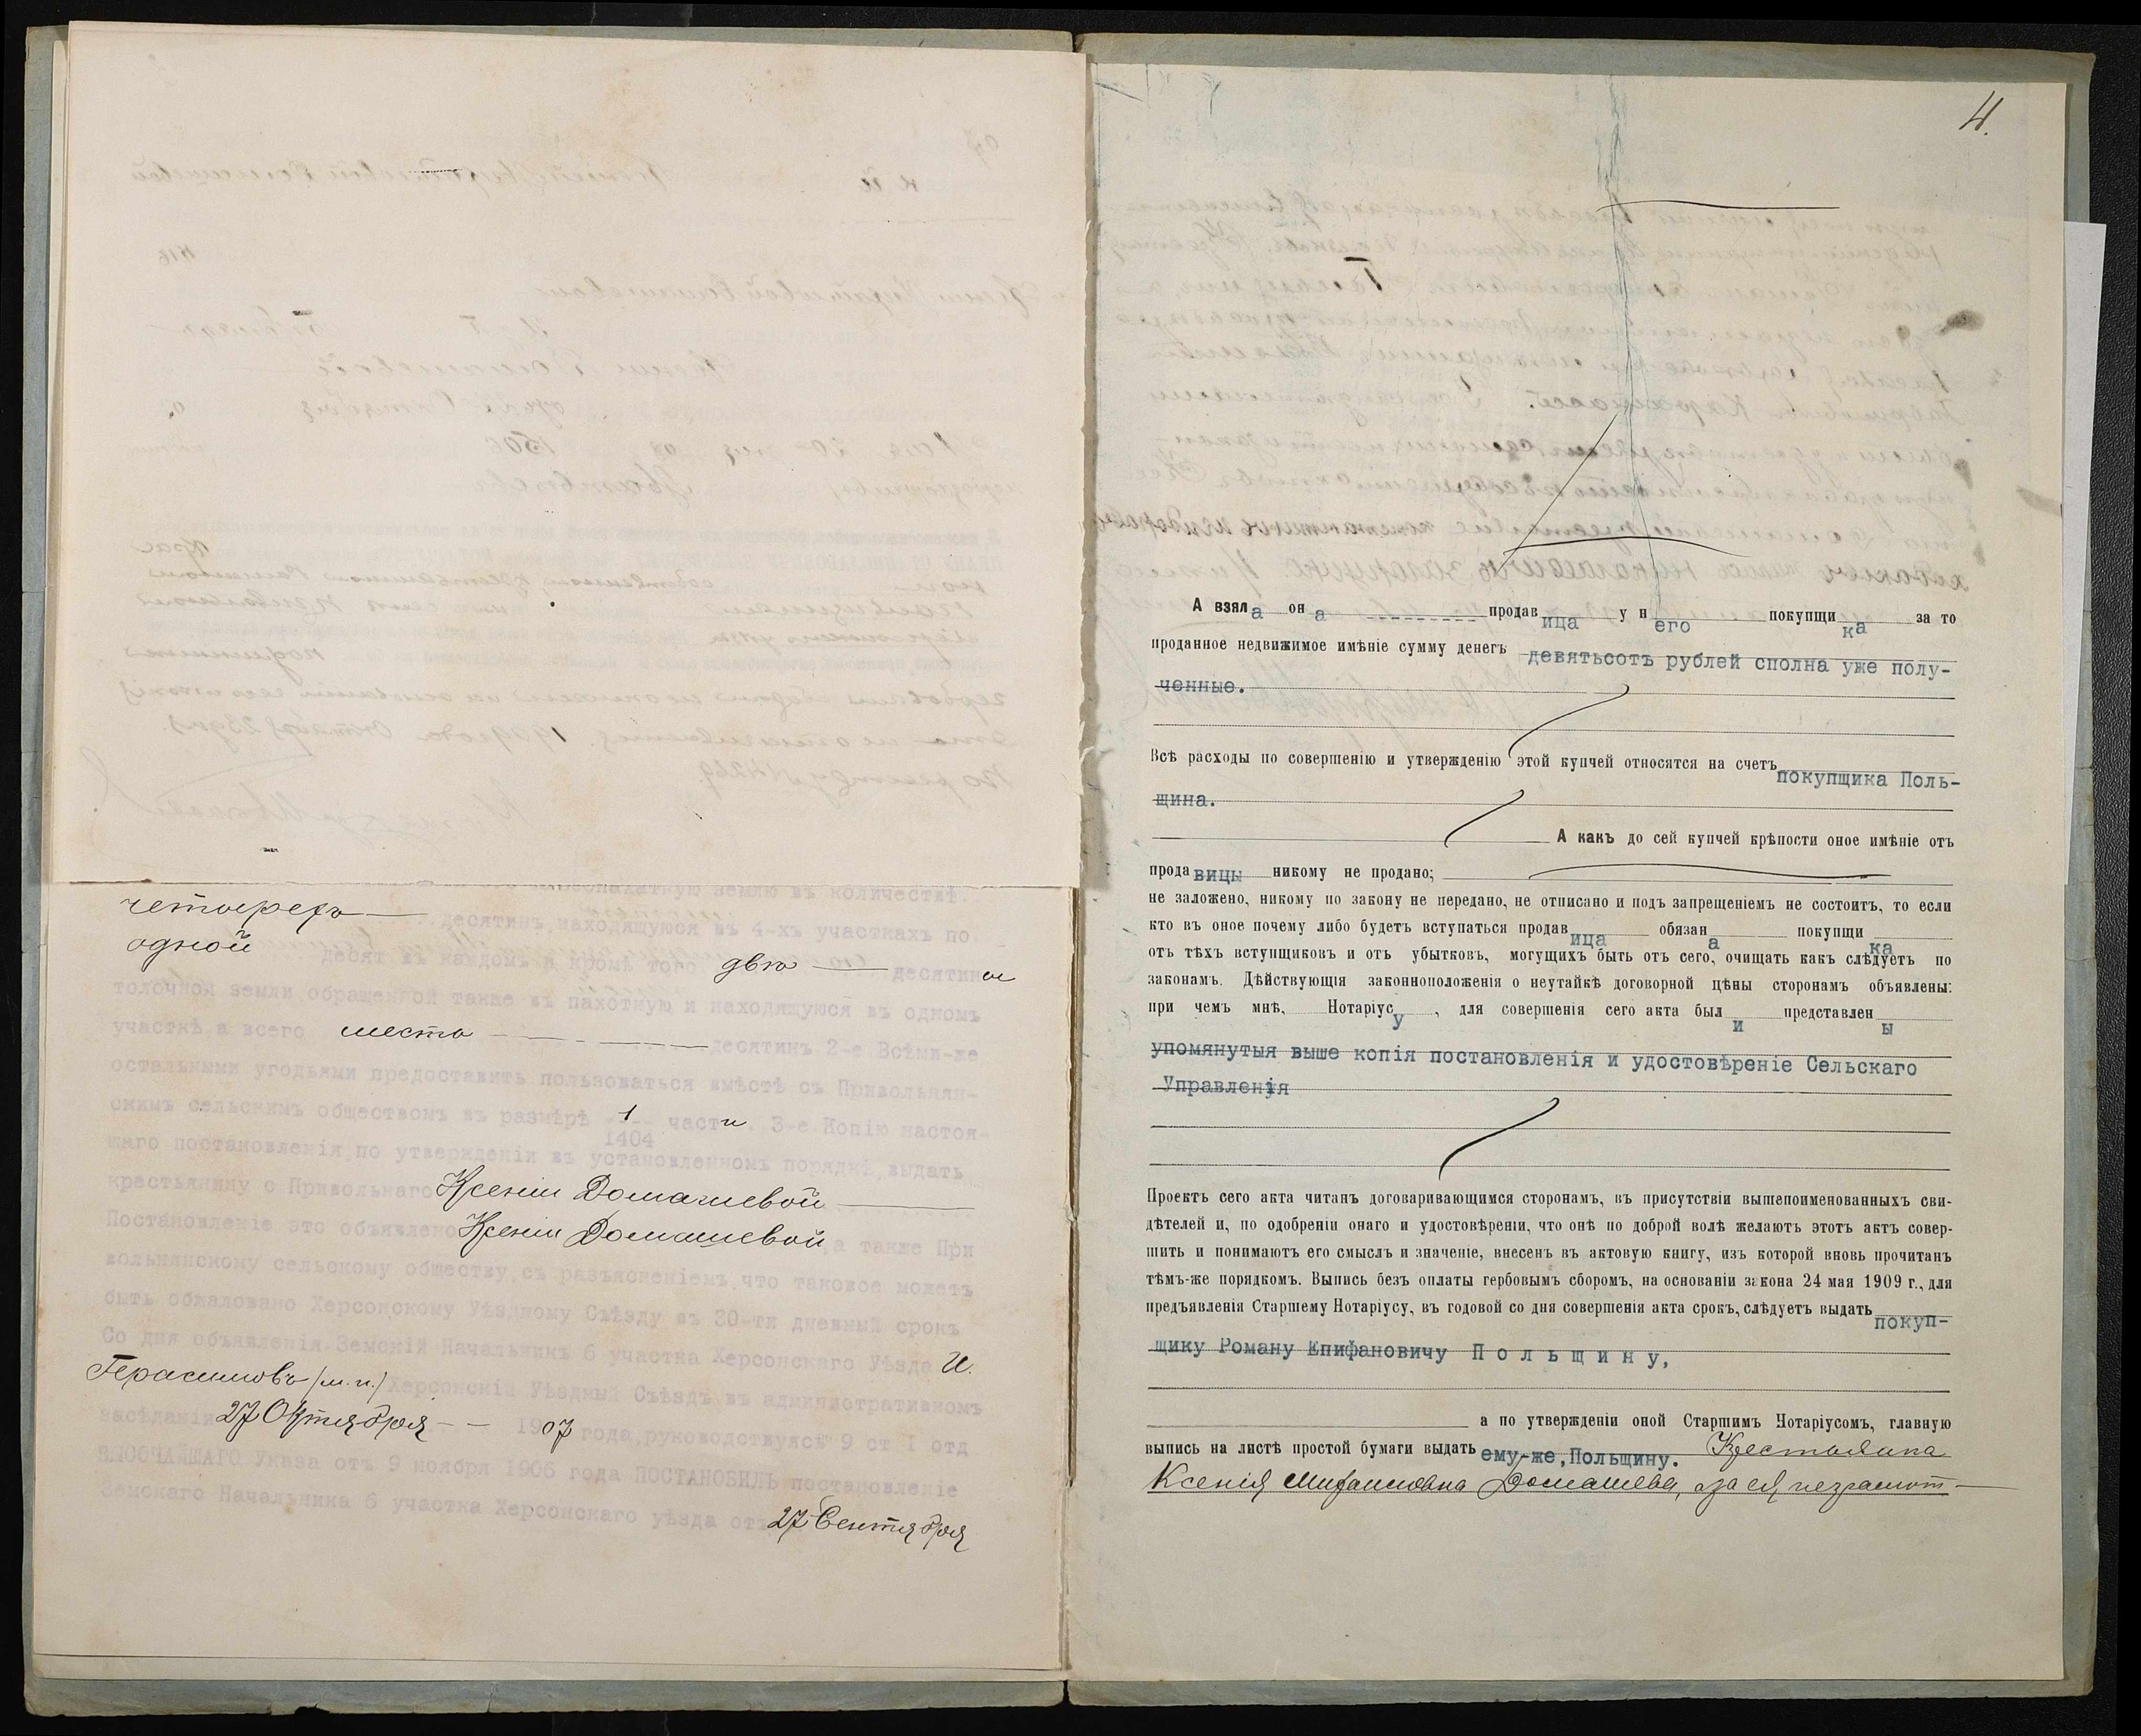 пахатную землю въ количествѣ
четырехъ десятинъ, находящуюся въ 4-хъ участкахъ по
одной десят въ каждомъ и кромѣ того двѣ десятины
толочной земли обращенной также въ пахотную и находящуюся въ одномъ
участкѣ а всего шесть десятинъ 2-е Всѣми-же
остальными угодьями предоставить пользоваться вмѣстѣ съ Привольнян-
скимъ сельскимъ обществомъ въ размѣрѣ 1/1404 части. 3-е Копію настоя-
щаго постановленія, по утвержденіи въ установленномъ порядкѣ, выдать
крестьянину с Привольнаго Ксеніи Домашевой
Постановленіе это объявлено Ксеніи Домашевой, а также При
вольнянскому сельскому обществу, съ разъясненіемъ, что таковое можетъ
быть обжаловано Херсонскому Уѣздному Съѣзду въ 30-ти дневный срокъ
Со дня объявленія. Земскій Начальникъ 6 участка Херсонскаго Уѣзда И.
Герасимовъ /м.п./ Херсонскій Уѣздный Съѣздъ въ административномъ
засѣданіи 27 Октября 1907 года, руководствуясь 9 ст I отд
ВЫСОЧАЙШАГО Указа отъ 9 ноября 1906 года ПОСТАНОВИЛЪ постановленіе
Земскаго Начальника 6 участка Херсонскаго уѣзда отъ 27 Сентября
4.
А взяла она продавица у него покупщика за то
проданное недвижимое имѣніе сумму денегъ девятьсотъ рублей сполна уже полу-
ченные.
Всѣ расходы по совершенію и утвержденію этой купчей относятся на счетъ покупщика Поль-
щина.
А какъ до сей купчей крѣпости оное имѣніе отъ
продавицы никому не продано;
не заложено, никому по закону не передано, не отписано и подъ запрещеніемъ не состоитъ, то если
кто въ оное почему либо будетъ вступаться продавица обязана покупщика
отъ тѣхъ вступщиковъ и отъ убытковъ, могущихъ быть отъ сего, очищать какъ слѣдуетъ по
законамъ. Дѣйствующія законноположенія о неутайкѣ договорной цѣны сторонамъ объявлены:
при чемъ мнѣ, Нотаріусу, для совершенія сего акта были представлены
упомянутыя выше копія постановленія и удостовѣреніе Сельскаго
Управленія
Проектъ сего акта читанъ договаривающимся сторонамъ, въ присутствіи вышепоименованныхъ сви-
дѣтелей и, по одобреніи онаго и удостовѣреніи, что онѣ по доброй волѣ желаютъ этотъ актъ совер-
шить и понимаютъ его смыслъ и значеніе, внесенъ въ актовую книгу, изъ которой вновь прочитанъ
тѣмъ-же порядкомъ. Выпись безъ оплаты гербовымъ сборомъ, на основаніи закона 24 мая 1909 г., для
предъявленія Старшему Нотаріусу, въ годовой со дня совершенія акта срокъ, слѣдуетъ выдать покуп-
щику Роману Епифановичу Польщину,
а по утвержденіи оной Старшимъ Нотаріусомъ, главную
выпись на листѣ простой бумаги выдать ему-же, Польщину. Крестьянка
Ксенія Митрановна Домашева, а за ея неграмот-